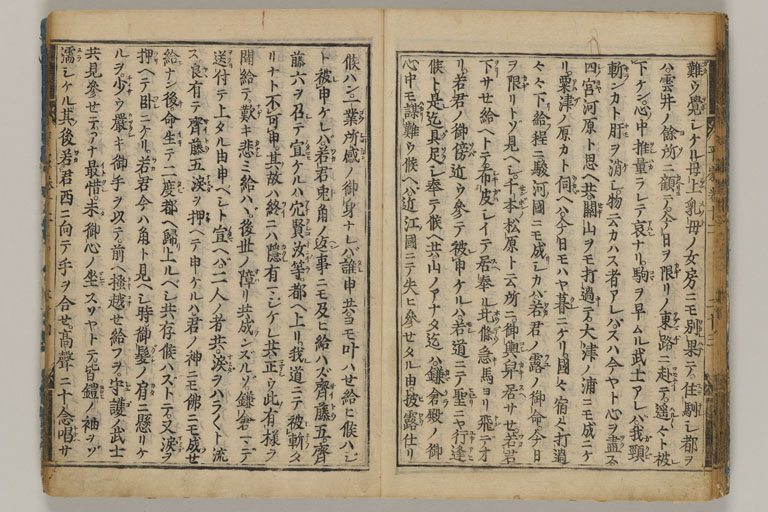 難ウ覺ヘシケル母上乳母ノ女房ニモ別果テヽ住馴シ都ヲ
ハ雲井ノ餘所ニ顧テ今日ヲ限リノ東路ニ赴テ遙々ト被
下ケン心中推量ラレテ哀ナリ駒ヲ早ムル武士アレハ我頸
斬ンカト肝ヲ消シ物云カハス者アレバスハ今ヤト心ヲ盡ス
四宮河原ト思ヘ共關山ヲモ打過テ大津ノ浦ニモ成ニケ
リ粟津ノ原カト伺ヘハ今日モハヤ暮ニケリ國々宿々打過
々々下給程ニ駿河國ニモ成シカハ若君ノ露ノ御命今日
ヲ限リトソ見ヘシ千本松原ト云所ニ御輿舁居サセ若君
下サセ給ヘトテ布皮シイテ居奉ル北條急馬ヨリ飛テオ
リ若君ノ御傍近ウ參テ被申ケルハ若道ニテ聖ニヤ行逢
候ト是迄具足シ奉テ候ヘ共山ノアナタ迄ハ鎌倉殿ノ御
心中モ謀難ウ候ヘハ近江國ニテ失ヒ參セタル由披露仕リ
候ハン一業所感ノ御身ナレバ誰申共ヨモ叶ハセ給ヒ候ハジ
ト被申ケレハ若君兎角ノ返事ニモ及ヒ給ハズ齊藤五齊
藤六ヲ召テ宣ケルハ穴賢汝等都ヘ上リ我道ニテ被斬タ
リナト不可申其故ハ終ニハ隱有マジケレ共正ウ此有様ヲ
聞給テ歎キ悲ミ給ハハ後世ノ障リ共成ンズルソ鎌倉マテ
送付テ上タル由申ヘシト宣ヘハ二人ノ者共涙ヲハラハラト流
ス良有テ齊藤五涙ヲ押ヘテ申ケルハ君ノ神ニモ佛ニモ成セ
給ナン後命生テ二度都ヘ歸上ルヘシ共存候ハズトテ又涙ヲ
押ヘテ臥ニケリ若君今ハ角ト見ヘシ時御髪ノ肩ニ懸リケ
ルヲ少ウ嚴キ御手ヲ以テ前ヘ掻越セ給フヲ守護ノ武士
共見參セテアナ最惜未御心ノ坐スソヤトテ皆鎧ノ袖ヲソ
濡シケル其後若君西ニ向テ手ヲ合セ高聲ニ十念唱サ